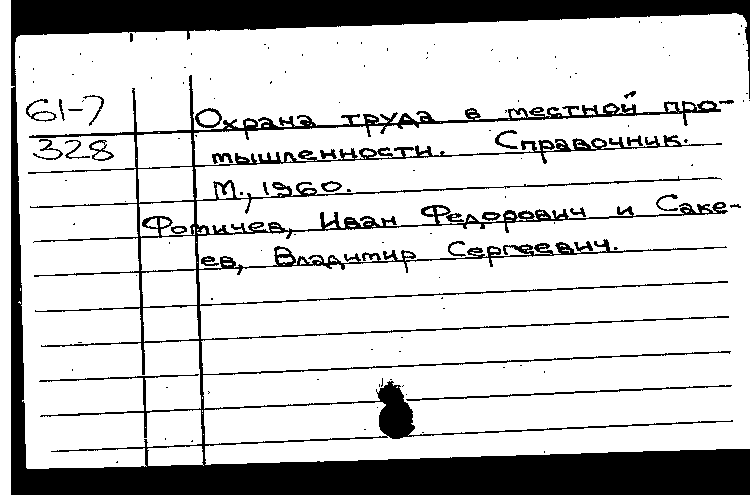 61-7 Охрана труда в местной про-
328 мышленности. Справочник.
М., 1960.
Фомичев, Иван Федорович и Саке-
ев, Владимир Сергеевич.